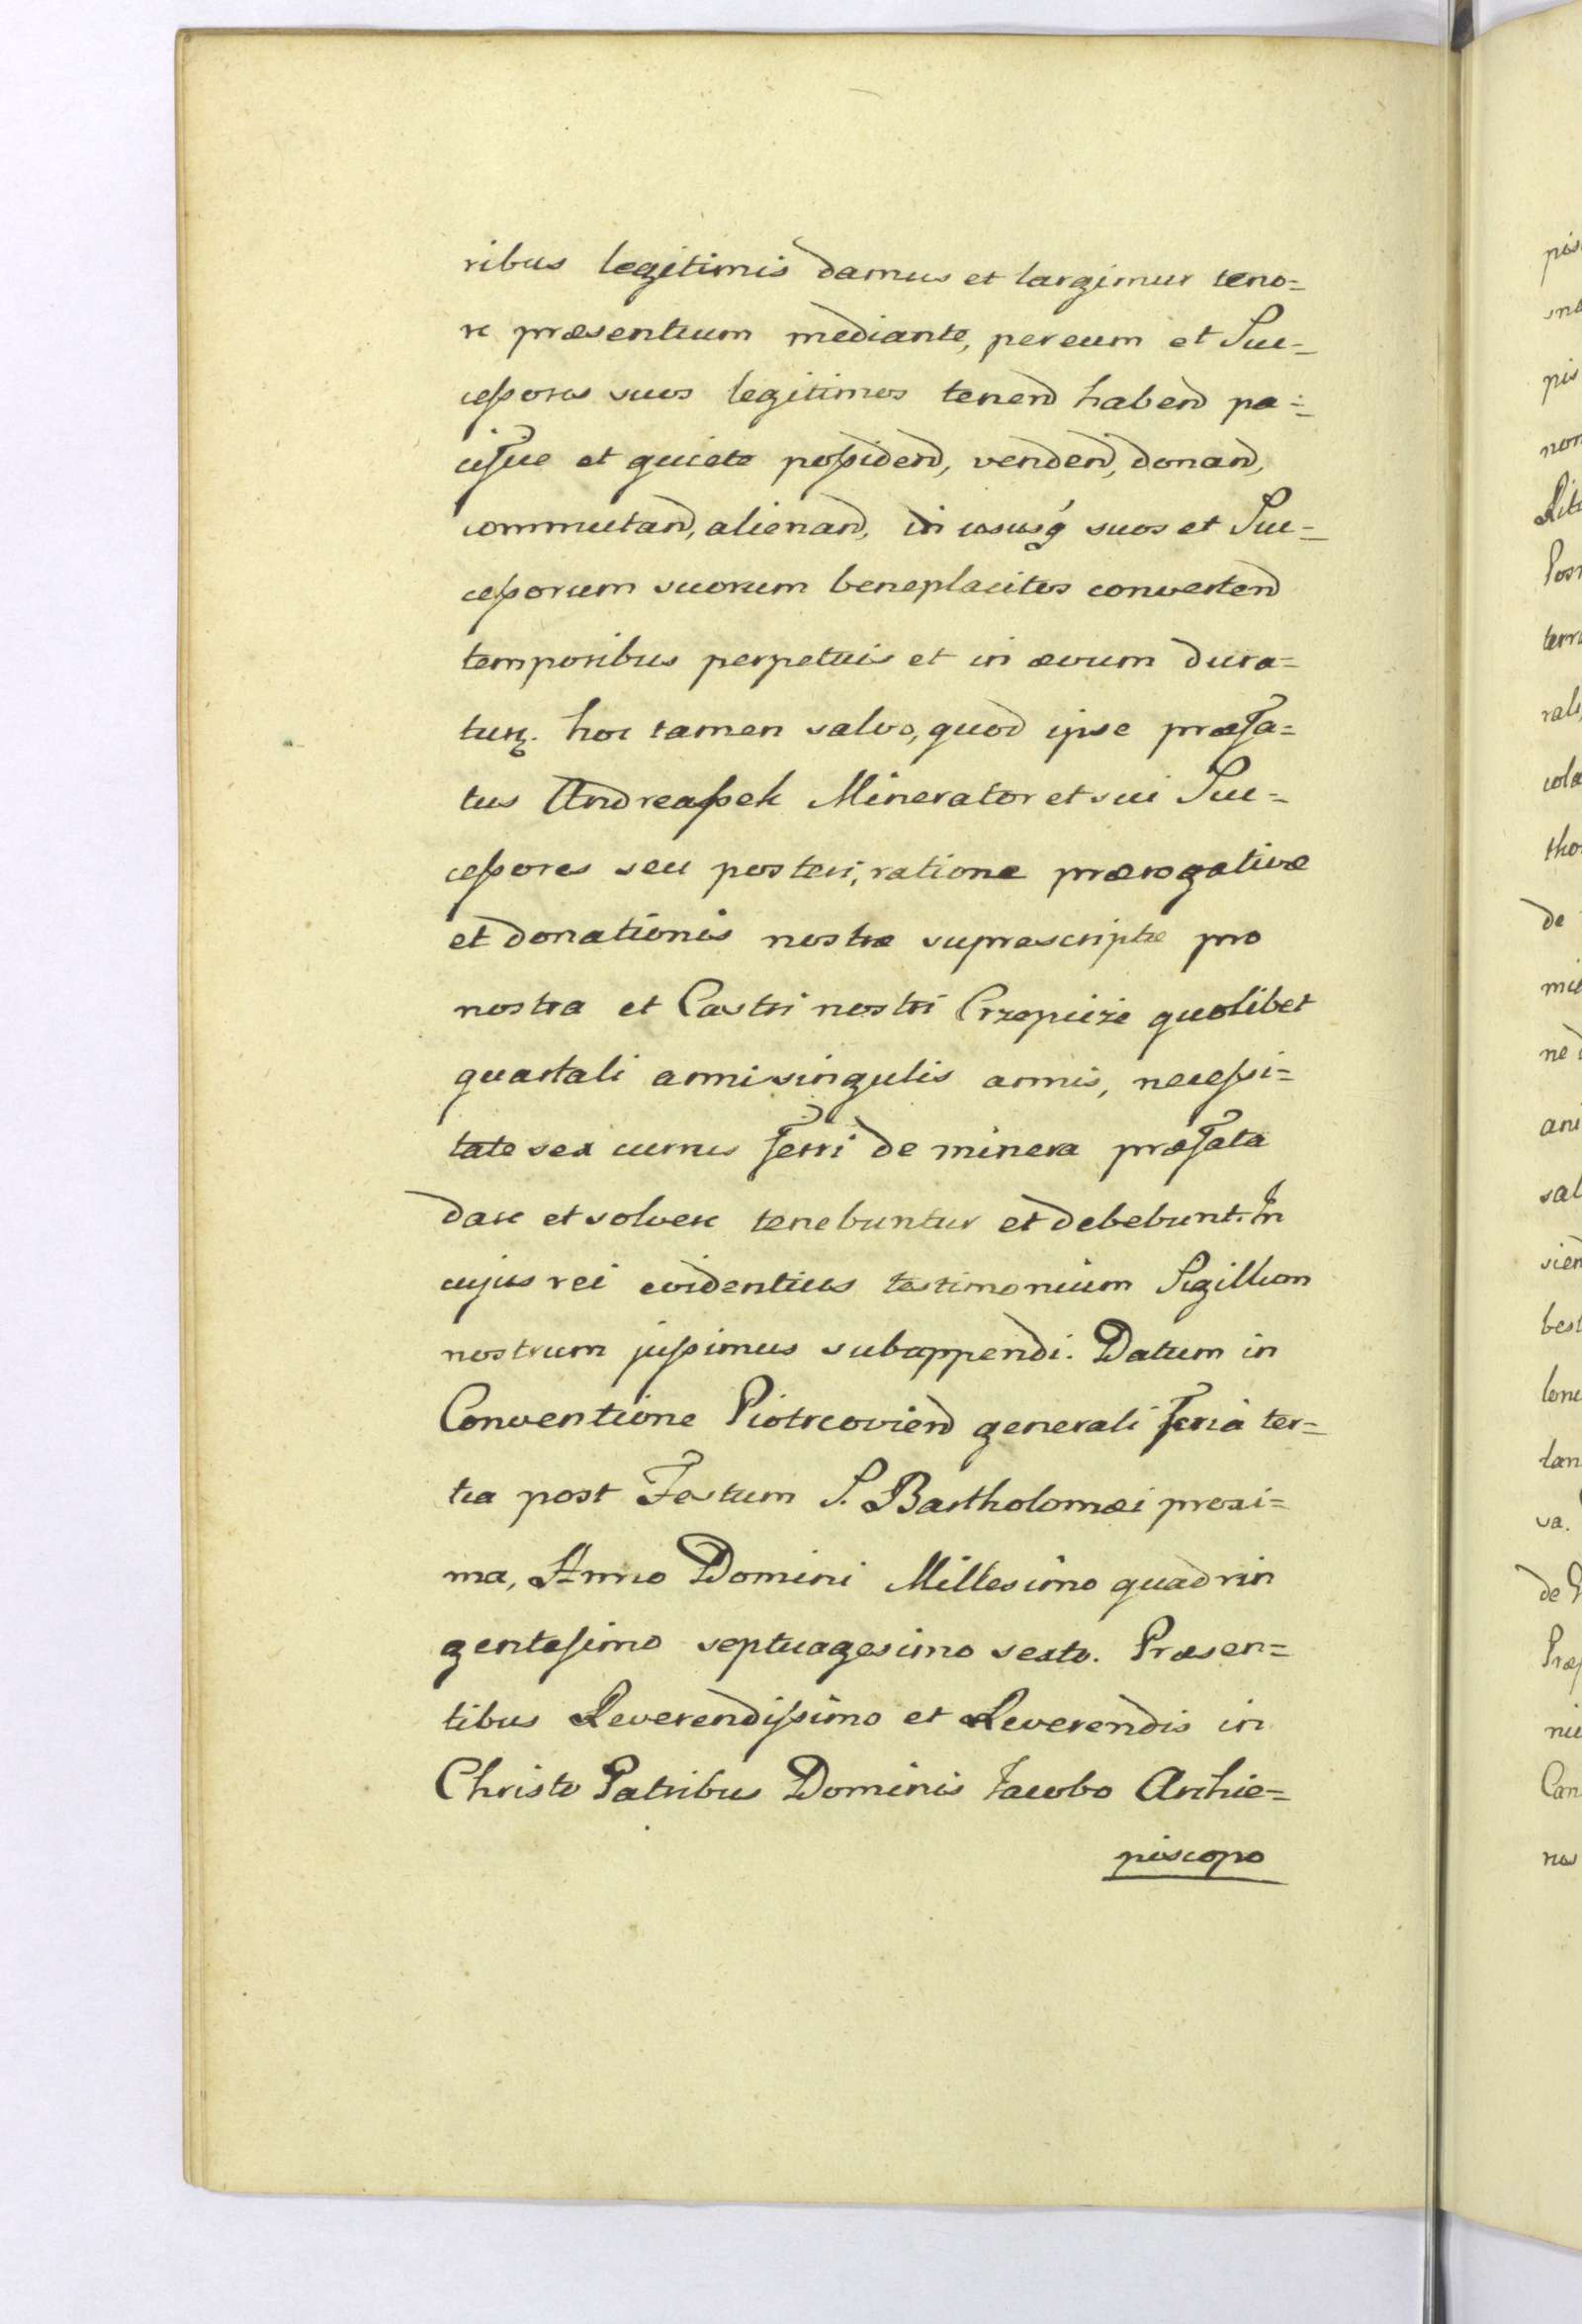 ribus legitimis damus et largimur teno=
re præsentium mediante, per eum et Suc=
ceſsores suos legitimos tenend habend pa=
cifice et quiete poſsidend, vendend, donand,
commutand, alienand, in ususq suos et Suc=
ceſsorum suorum beneplacitos convertend
temporibus perpetuis et in ævum dura=
tur. hoc tamen salvo, quod ipse præfa=
tus Andreaſsek Minerator et sui Suc=
ceſsores seu posteri, ratione prærogativæ
et donationis nostræ suprascriptæ pro
nostra et Castri nostri Crzepicze quolibet
quartali anni singulis annis, neceſsi=
tate sex currus ferri de minera præfata
dare et solvere tenebuntur et debebunt. In
cujus rei evidentius testimonium Sigillum
nostrum juſsimus subappendi. Datum in
Conventione Piotrcoviend generali feria ter=
tia post Festum S. Bartholomæi proxi=
ma, Anno Domini Millesimo quadrin
genteſimo septuagesimo sexto. Præsen=
tibus Reverendiſsimo et Reverendis in
Christo Patribus Dominis Iacobo Archie=
piscopo